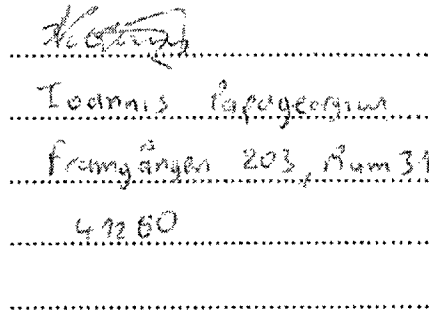 Ioannis Papageorgiou
Framgången 203, Rum 31
41280